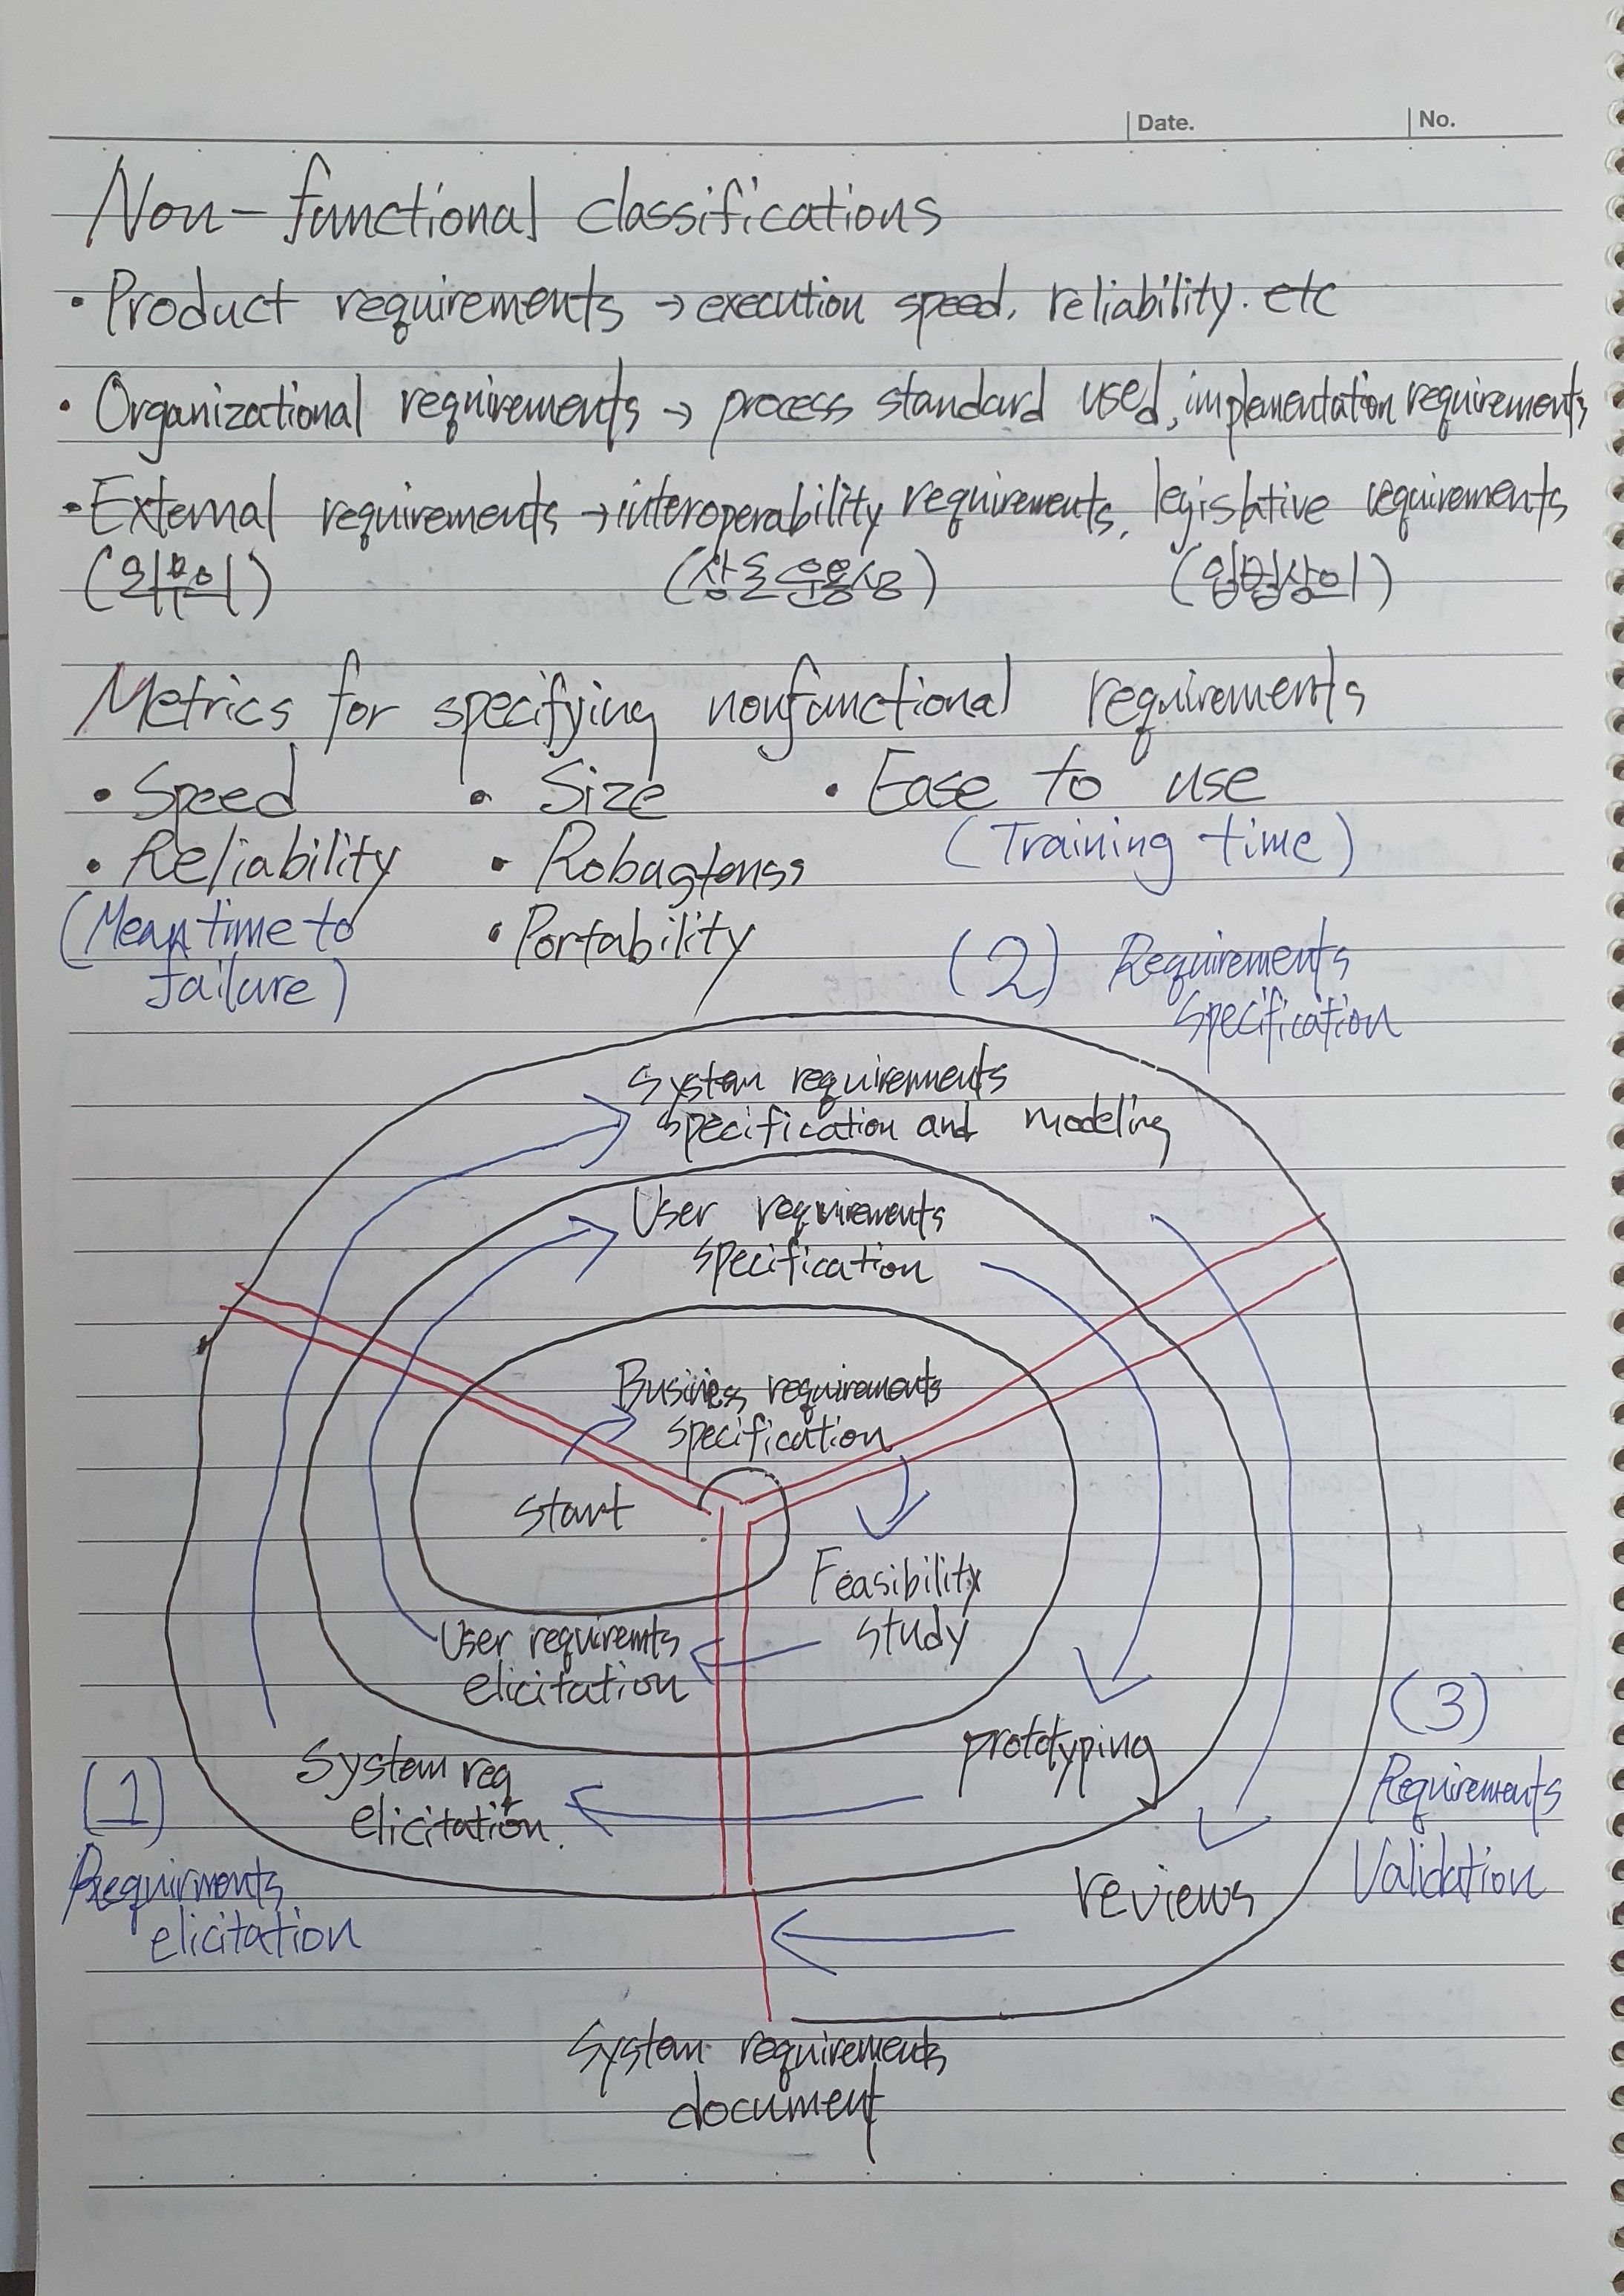 Date.
No.
Non-functional classifications
• Product requirements → execution speed, reliability. etc
• Organizational requirements → process standard used, implementation requirements
• External requirements → interoperability requirements, legislative requirements
(외부의) (상호운용성) (입법상의)
Metrics for specifying nonfunctional requirements
• Speed • Size • Ease to use
(Training time)
• Reliability •
(Mean time to
failure)
• Portability
(2) Requirements
specification
System requirements
specification and modeling
User requirements
specification
Business requirements
specification
Start
Feasibility
study
User requiremts
elicitation
prototyping
System req
elicitation.
(1)
Requirments
elicitation
(3)
Requirements
Validation
reviews
System requirements
document